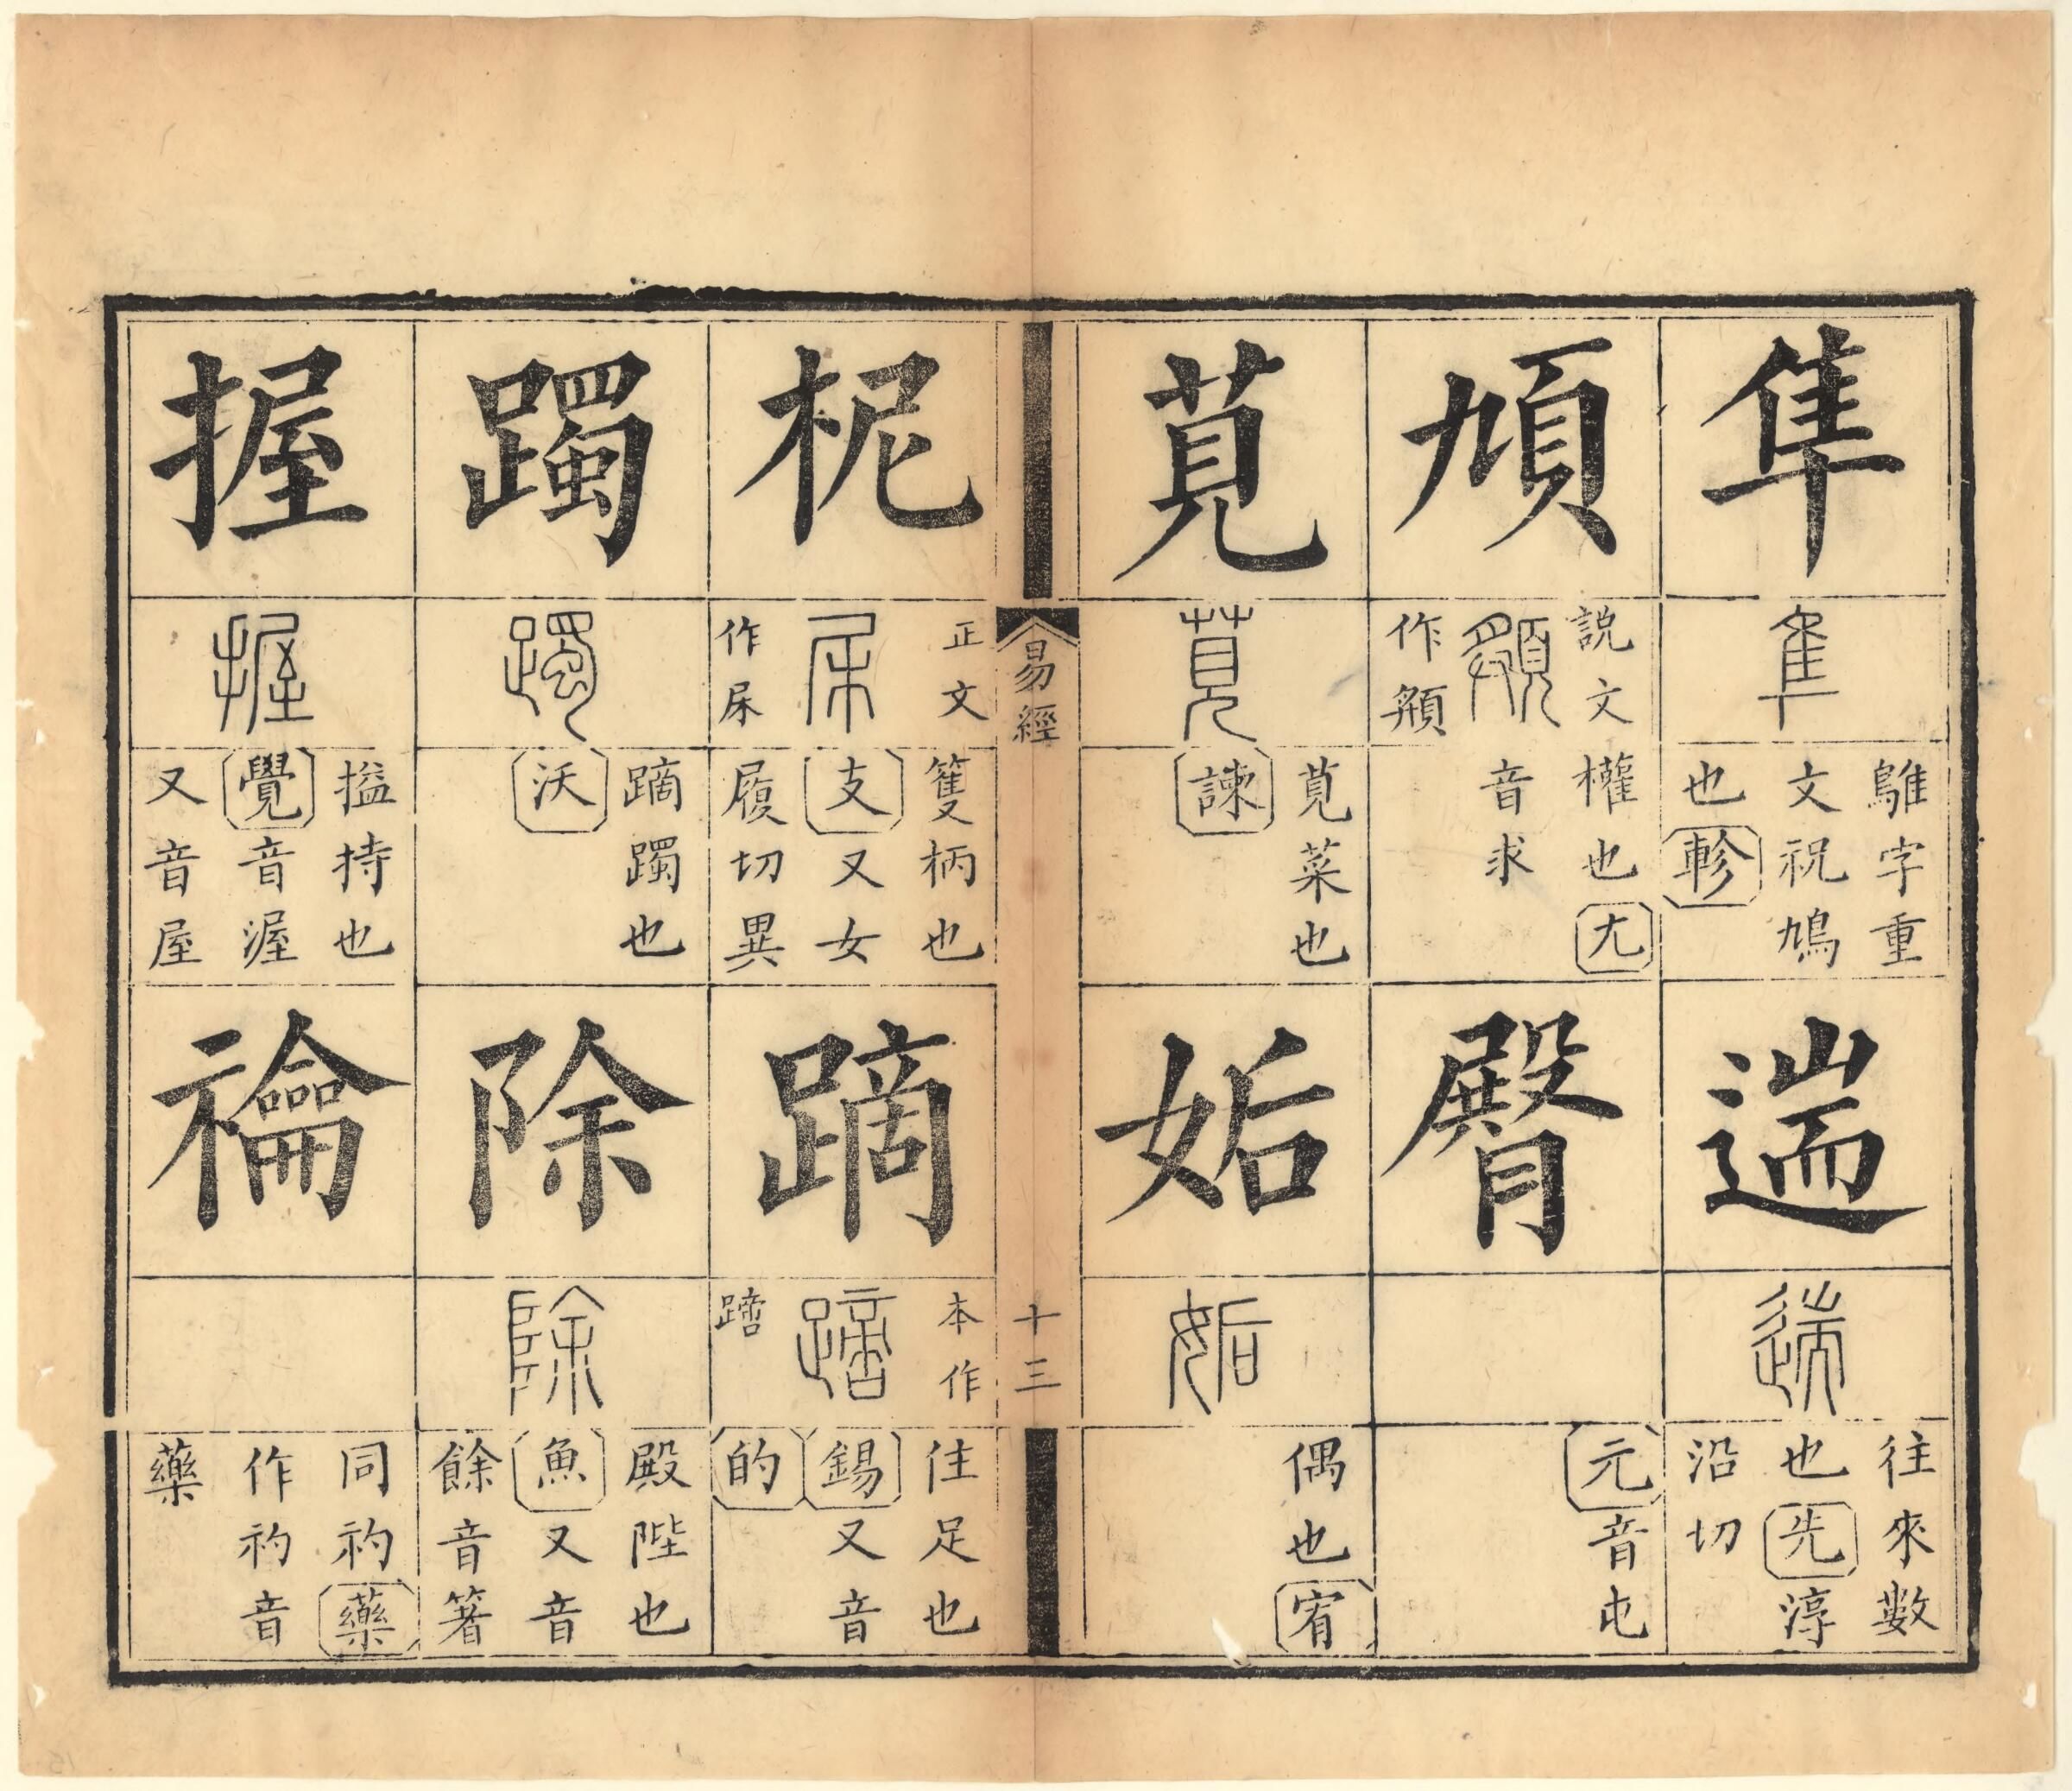 隼
隼
鵻字重
文祝鳩
也軫
遄
遄
往來數
也先淳
沿切
頄
說文
頯
作頯
權也尤
音求
臀
元音屯
莧
莧
莧菜也
諫
姤
姤
偶也宥
易經
十三
柅
正文
杘
作杘
篗柄也
支又女
履切異
蹢
本作
住足也
錫又音
的
躅
躅
蹢躅也
沃
除
除
殿陛也
魚又音
餘音箸
握
握
搤持也
覺音渥
又音屋
禴
同礿藥
作礿音
藥